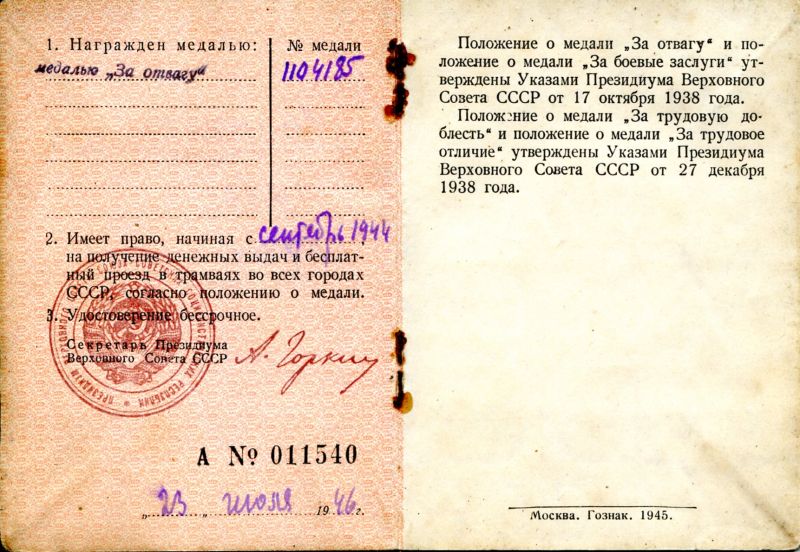 1. Награжден медалью: № медали
медалью „За отвагу“ 1104185
2. Имеет право, начиная с сентябрь 1944,
на получение денежных выдач и бесплат-
ный проезд в трамваях во всех городах
СССР, согласно положению о медали.
3. Удостоверение бессрочное.
Секретарь Президиума
Верховного Совета СССР А. Горкин
А № 011540
„ 23 „ июля 1946 г.
Положение о медали „За отвагу“ и по-
ложение о медали „За боевые заслуги“ ут-
верждены Указами Президиума Верховного
Совета СССР от 17 октября 1938 года.
Положение о медали „За трудовую до-
блесть“ и положение о медали „За трудовое
отличие“ утверждены Указами Президиума
Верховного Совета СССР от 27 декабря
1938 года.
Москва. Гознак. 1945.